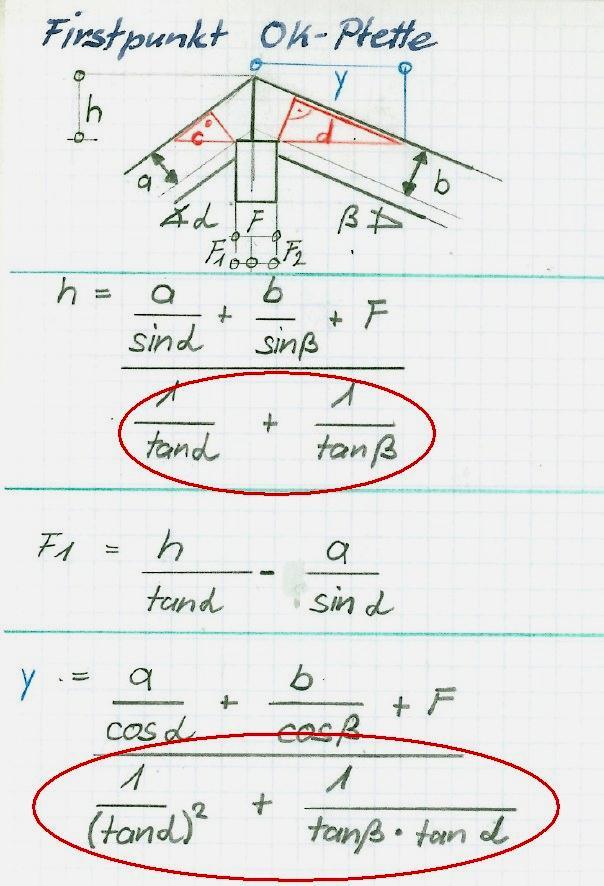 Firstpunkt OK-Pfette
y
h
c
d
a
b
∢α F β
F1 F2
h = a/sinα + b/sinβ + F
1/tanα + 1/tanβ
F1 = h/tanα - a/sinα
y = a/cosα + b/cosβ + F
1/(tanα)² + 1/tanβ · tanα